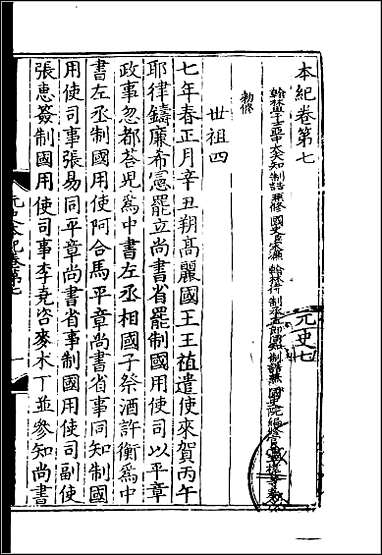 本紀卷第七
元史七
翰林學士亞中大夫知制誥兼修國史臣宋濂翰林待制承直郎同知制誥兼國史院編修官臣王禕等奉
勅修
世祖四
七年春正月辛丑朔高麗國王王禃遣使來賀丙午
耶律鑄廉希憲罷立尚書省罷制國用使司以平章
政事忽都荅児爲中書左丞相國子祭酒許衡爲中
書左丞制國用使阿合馬平章尚書省事同知制國
用使司事張易同平章尚書省事制國用使司副使
張惠簽制國用使司事李堯咨麥术丁並參知尚書